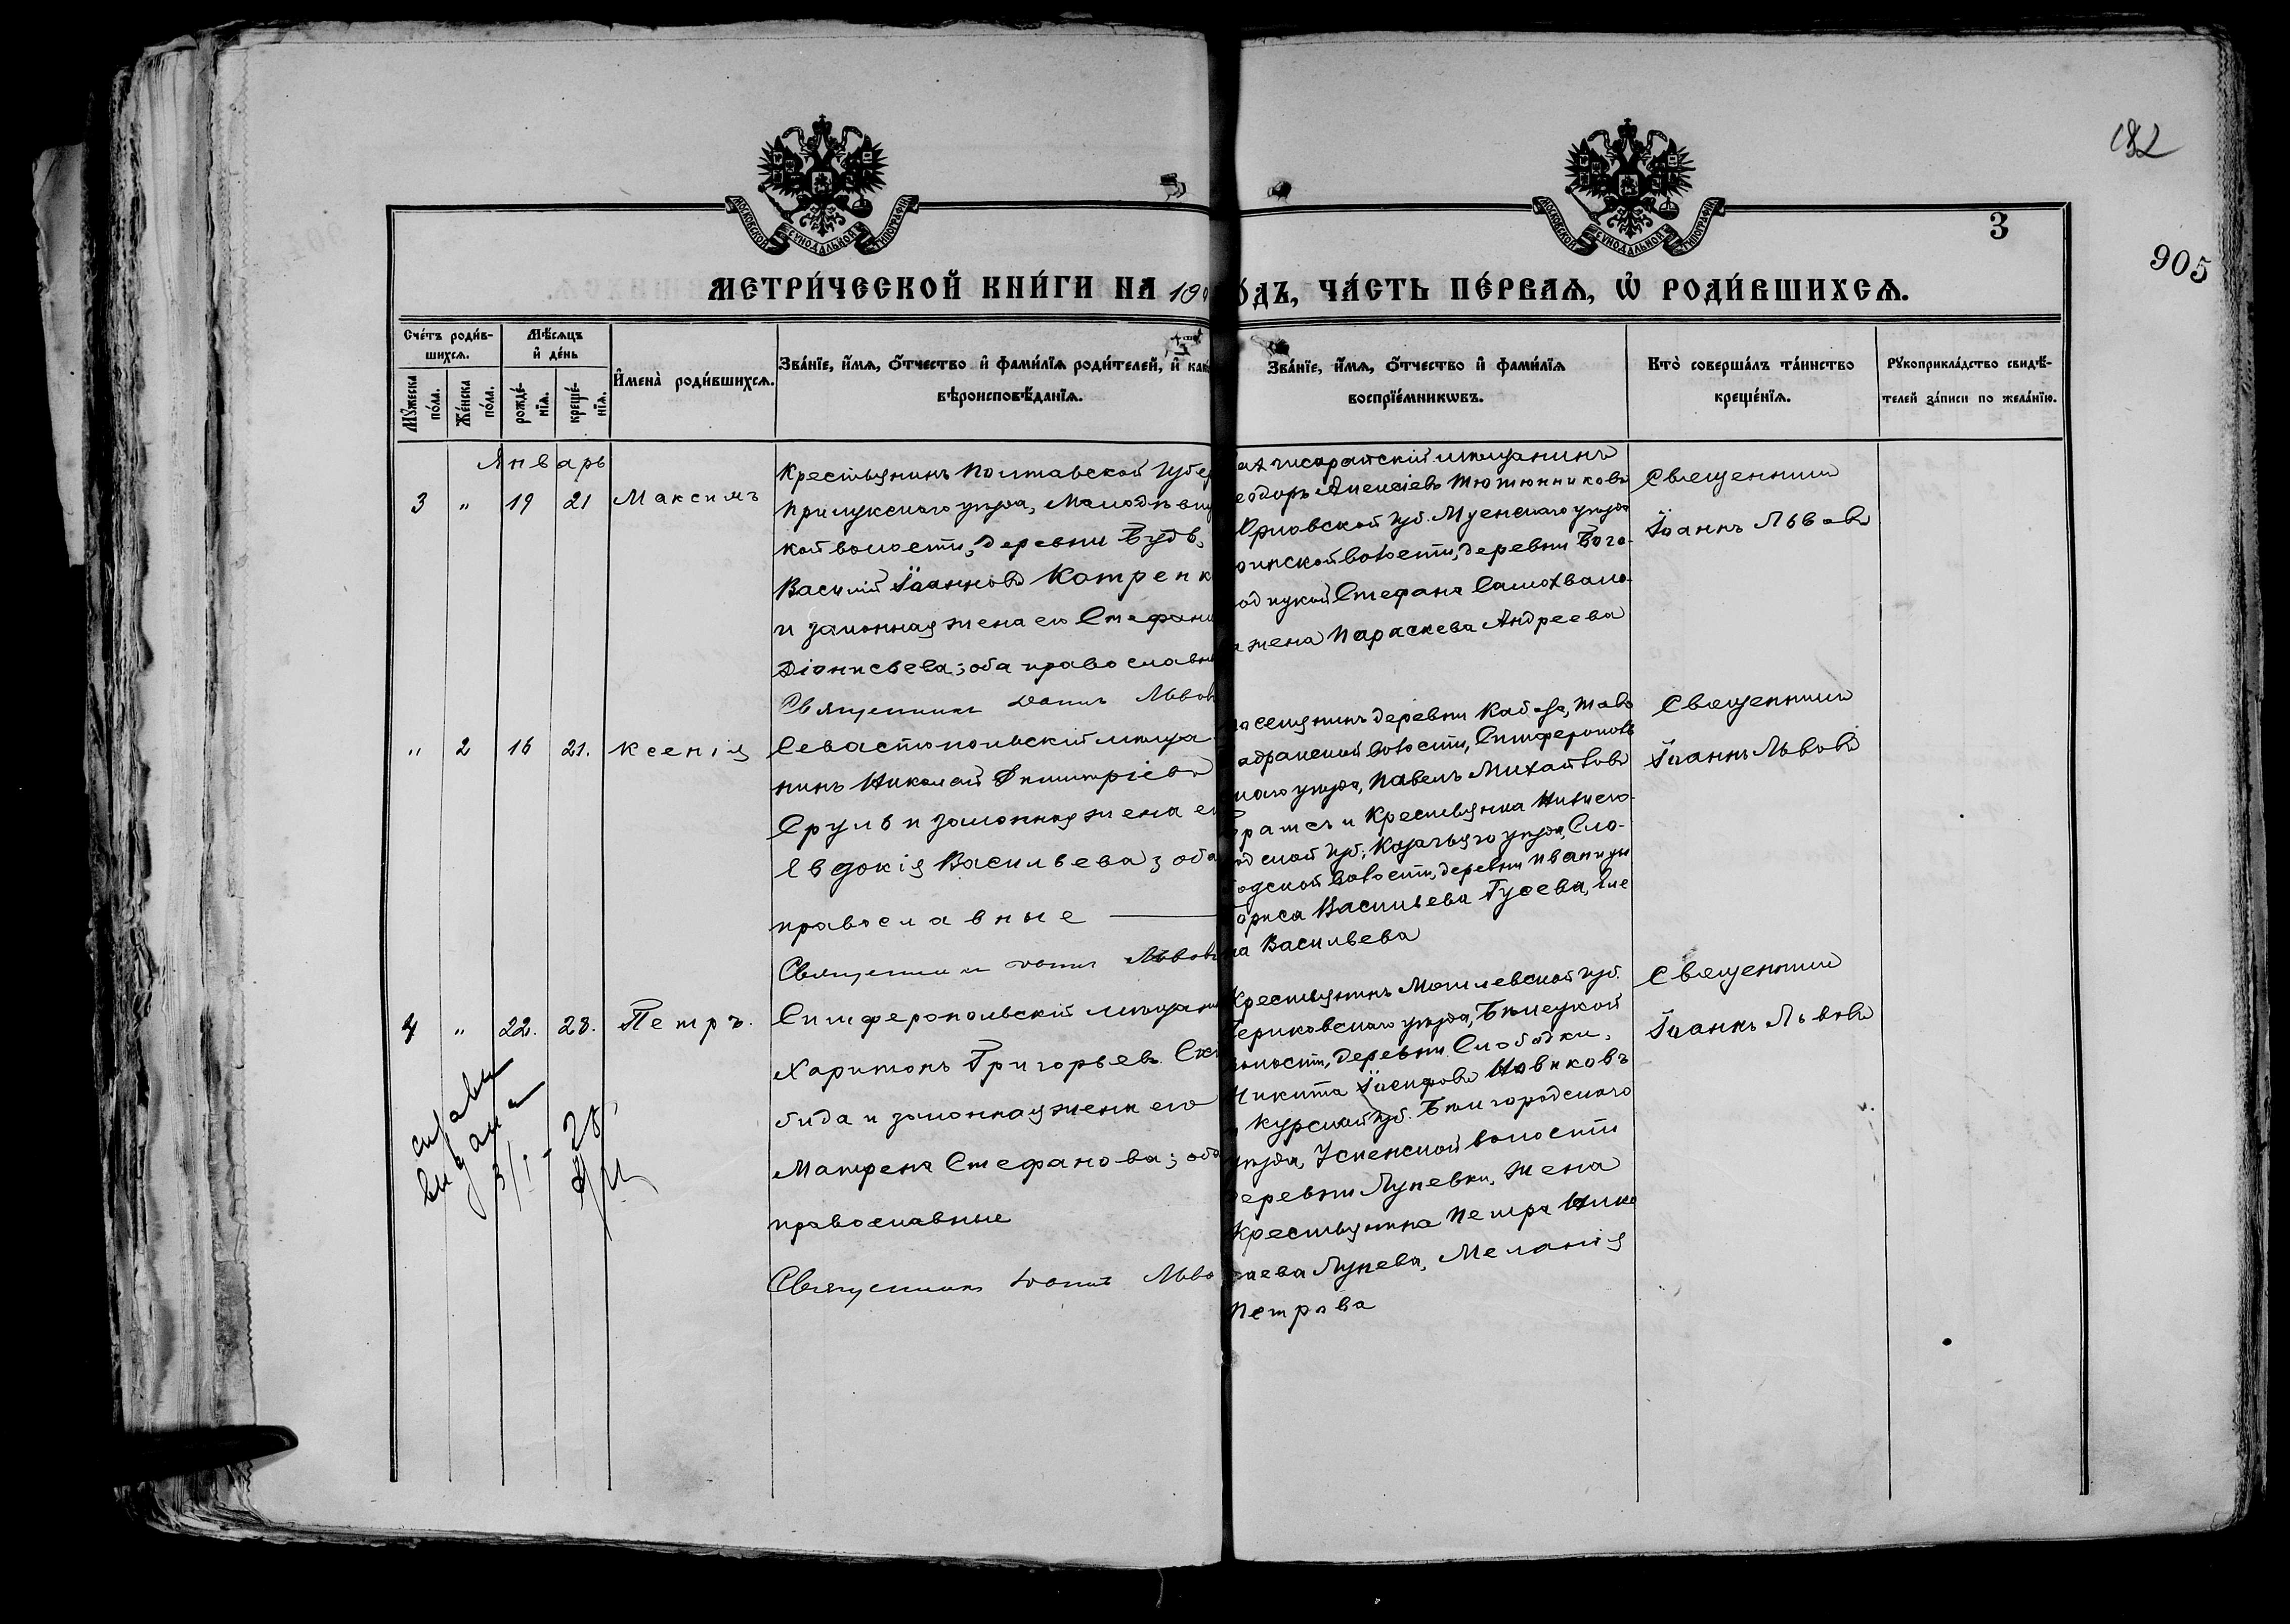 182
3
905
МОСКОВСКОЙ СѴНОДАЛЬНОЙ ТИПОГРАФІИ
МОСКОВСКОЙ СѴНОДАЛЬНОЙ ТИПОГРАФІИ
МЕТРИ́ЧЕСКОЙ КНИ́ГИ НА 19
О́ДЪ, ЧА́СТЬ ПЕ́РВАѦ, Ѡ҆ РОДИ́ВШИХСѦ.
Сче́тъ роди́в-
шихсѧ.
Мꙋ́жеска по́ла.
Же́нска по́ла.
Мѣ́сѧцъ
и҆ де́нь
рожде́-нїѧ.
креще́-нїѧ.
И҆мена̀ роди́вшихсѧ.
Зва́нїе, и҆́мѧ, ѻ҆́тчество и҆ фами́лїѧ роди́телей, и҆ как
вѣроисповѣ́данїѧ.
Зва́нїе, и҆́мѧ, ѻ҆́тчество и҆ фами́лїѧ
воспрїе́мникѡвъ.
Кто̀ соверша́лъ та́инство
креще́нїѧ.
Рꙋкоприкла́дство свидѣ́-
телей за́писи по жела́нїю.
Январь
3 " 19 21 Максимъ
Крестьянинъ Полтавской губер
Прилукскаго уѣзда,
кой волости, деревни Будъ,
Василій Іоанновъ Катренк
и законная жена его Стефани
Діонисьева; оба православн
Священникъ Іоаннъ Львов
мѣщанинъ
еодоръ Алексіевъ Тютюнниковъ
Орловской губ. Мценскаго уѣзда
волости, деревни Бого-
Стефана Самохвало-
а жена Параскева Андреева
Священникъ
Іоаннъ Львовъ
" 2 16 21. Ксенія
Севастопольскій мѣща-
нинъ Николай Димитріевъ
Сруль и законная жена ег
Евдокія Васильева; оба
православные
Священникъ Іоаннъ Львовъ
поселянинъ деревни Кабазе, Тав
волости, Симферополь
скаго уѣзда, Павелъ Михайловъ
и крестьянка Нижего-
од ской губ; уѣзда, Сло-
одской волости, деревни Иваницы
Бориса Васильева Гусева, Еле
на Васильева
Священникъ
Іоаннъ Львовъ
4 " 22. 28. Петръ.
Симферопольскій мѣщани
Харитонъ Григорьевъ Ск
бида и законная жена его
Матрена Стефанова; оба
православные
Священникъ Іоаннъ Льво
справка
выдана
Крестьянинъ Могилевской губ.
Чериковскаго уѣзда, Бѣлецкой
волости, деревни Слободки,
Никита Іосифовъ Новиковъ
и Курской губ. Бѣлгородскаго
уѣзда, Успенской волости
деревни Лупевки, жена
Крестьянина Петра Нико
лаева Лупева, Меланія
Петрова
Священникъ
Іоаннъ Львовъ